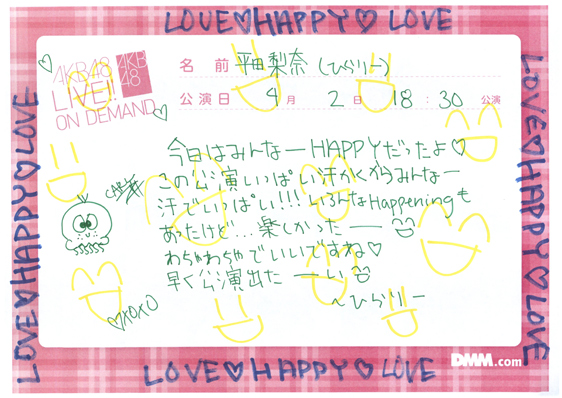 LOVE♡HAPPY♡LOVE
AKB48
LIVE!!
ON DEMAND
AKB
48
名前 平田梨奈(ひらりー)
公演日 4月 2日 18:30 公演
今日はみんなーHAPPYだったよ♡
この公演いっぱい汗かくからみんなー
汗でいっぱい!!!いろんなHappeningも
あったけど...楽しかったー
わちゃわちゃでいいですね♡
早く公演出たーい
〜ひらりー
♡XOXO
LOVE♡HAPPY♡LOVE
LOVE♡HAPPY♡LOVE
LOVE♡HAPPY♡LOVE
DMM.com